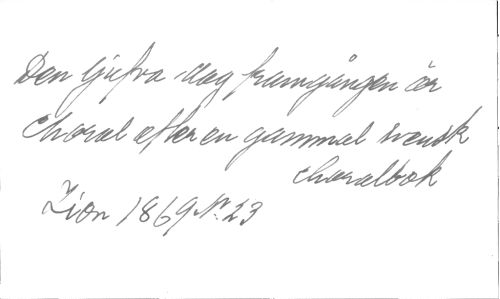 Den ljufva dag framgången är
Choral efter en gammal svensk
choralbok
Zion 1869 Nr. 23